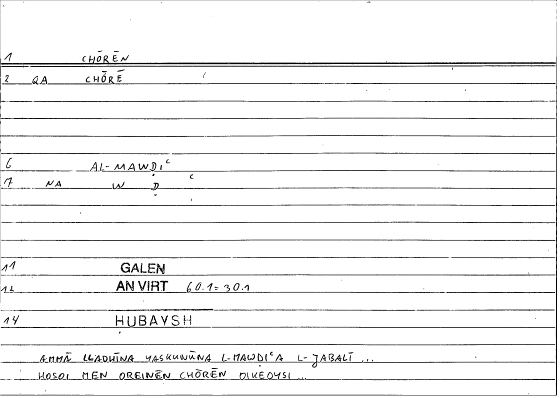 1 CHŌRĒN
2 QA CHŌRĒ
6 AL-MAWḌIᶜ
7 NA W Ḍ ᶜ
11 GALEN
12 AN VIRT 60.1=30.1
14 HUBAYSH
AMMĀ LLADHĪNA YASKUNŪNA L-MAWḌIᶜA L-JABALĪ ...
HOSOI MEN OREINĒN CHŌRĒN OIKEOYSI ...